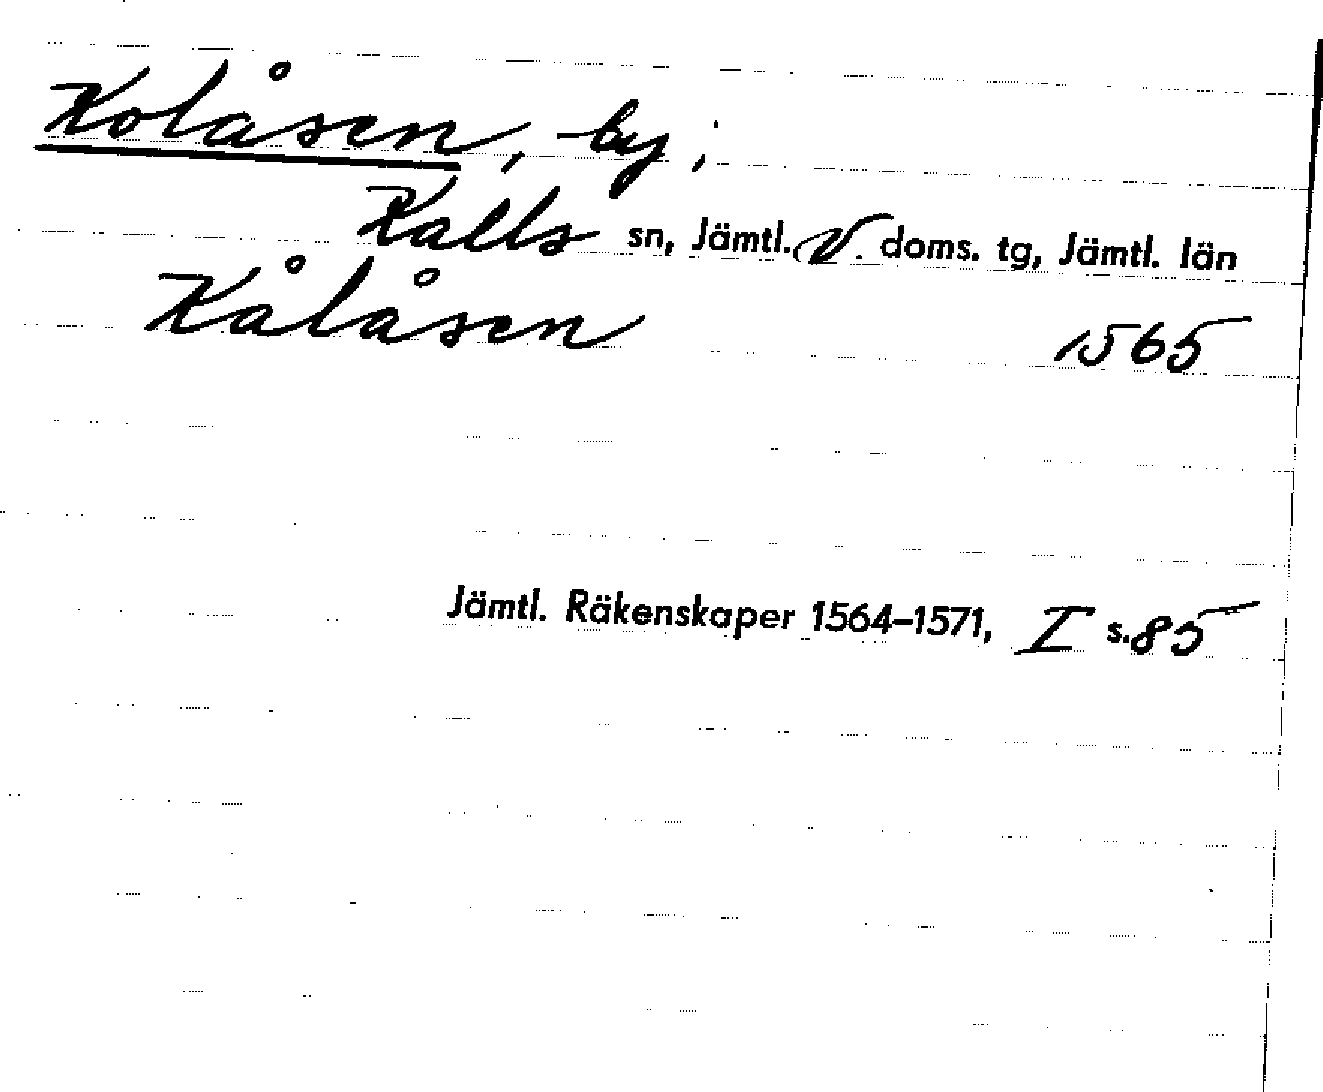 Kolåsen, by;
Kalls sn, Jämtl. V. doms. tg, Jämtl. län
Kålåsen 1565
Jämtl. Räkenskaper 1564–1571, I s. 85